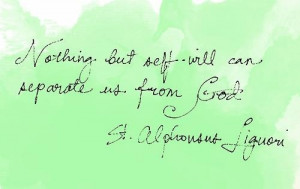 Nothing but self-will can
separate us from God
St. Alphonsus Liguori